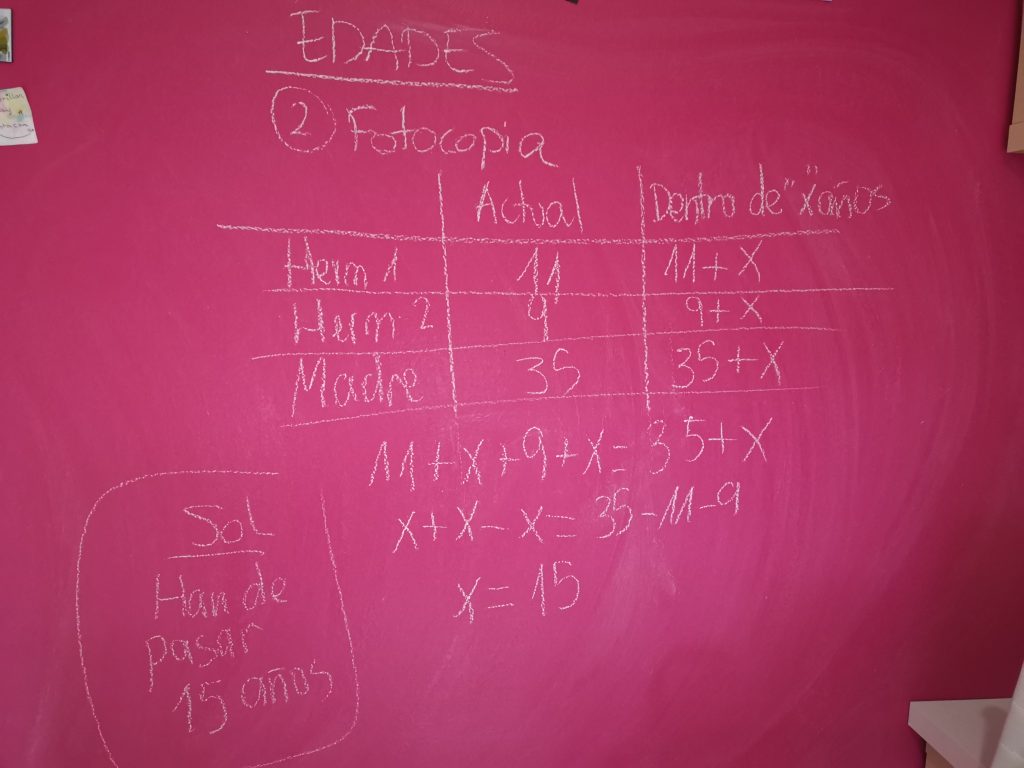 EDADES
2 Fotocopia
Actual Dentro de "x" años
Herm 1 11 11+x
Herm 2 9 9+x
Madre 35 35+x
11+x+9+x=35+x
x+x-x=35-11-9
x=15
Sol
Han de
pasar
15 años